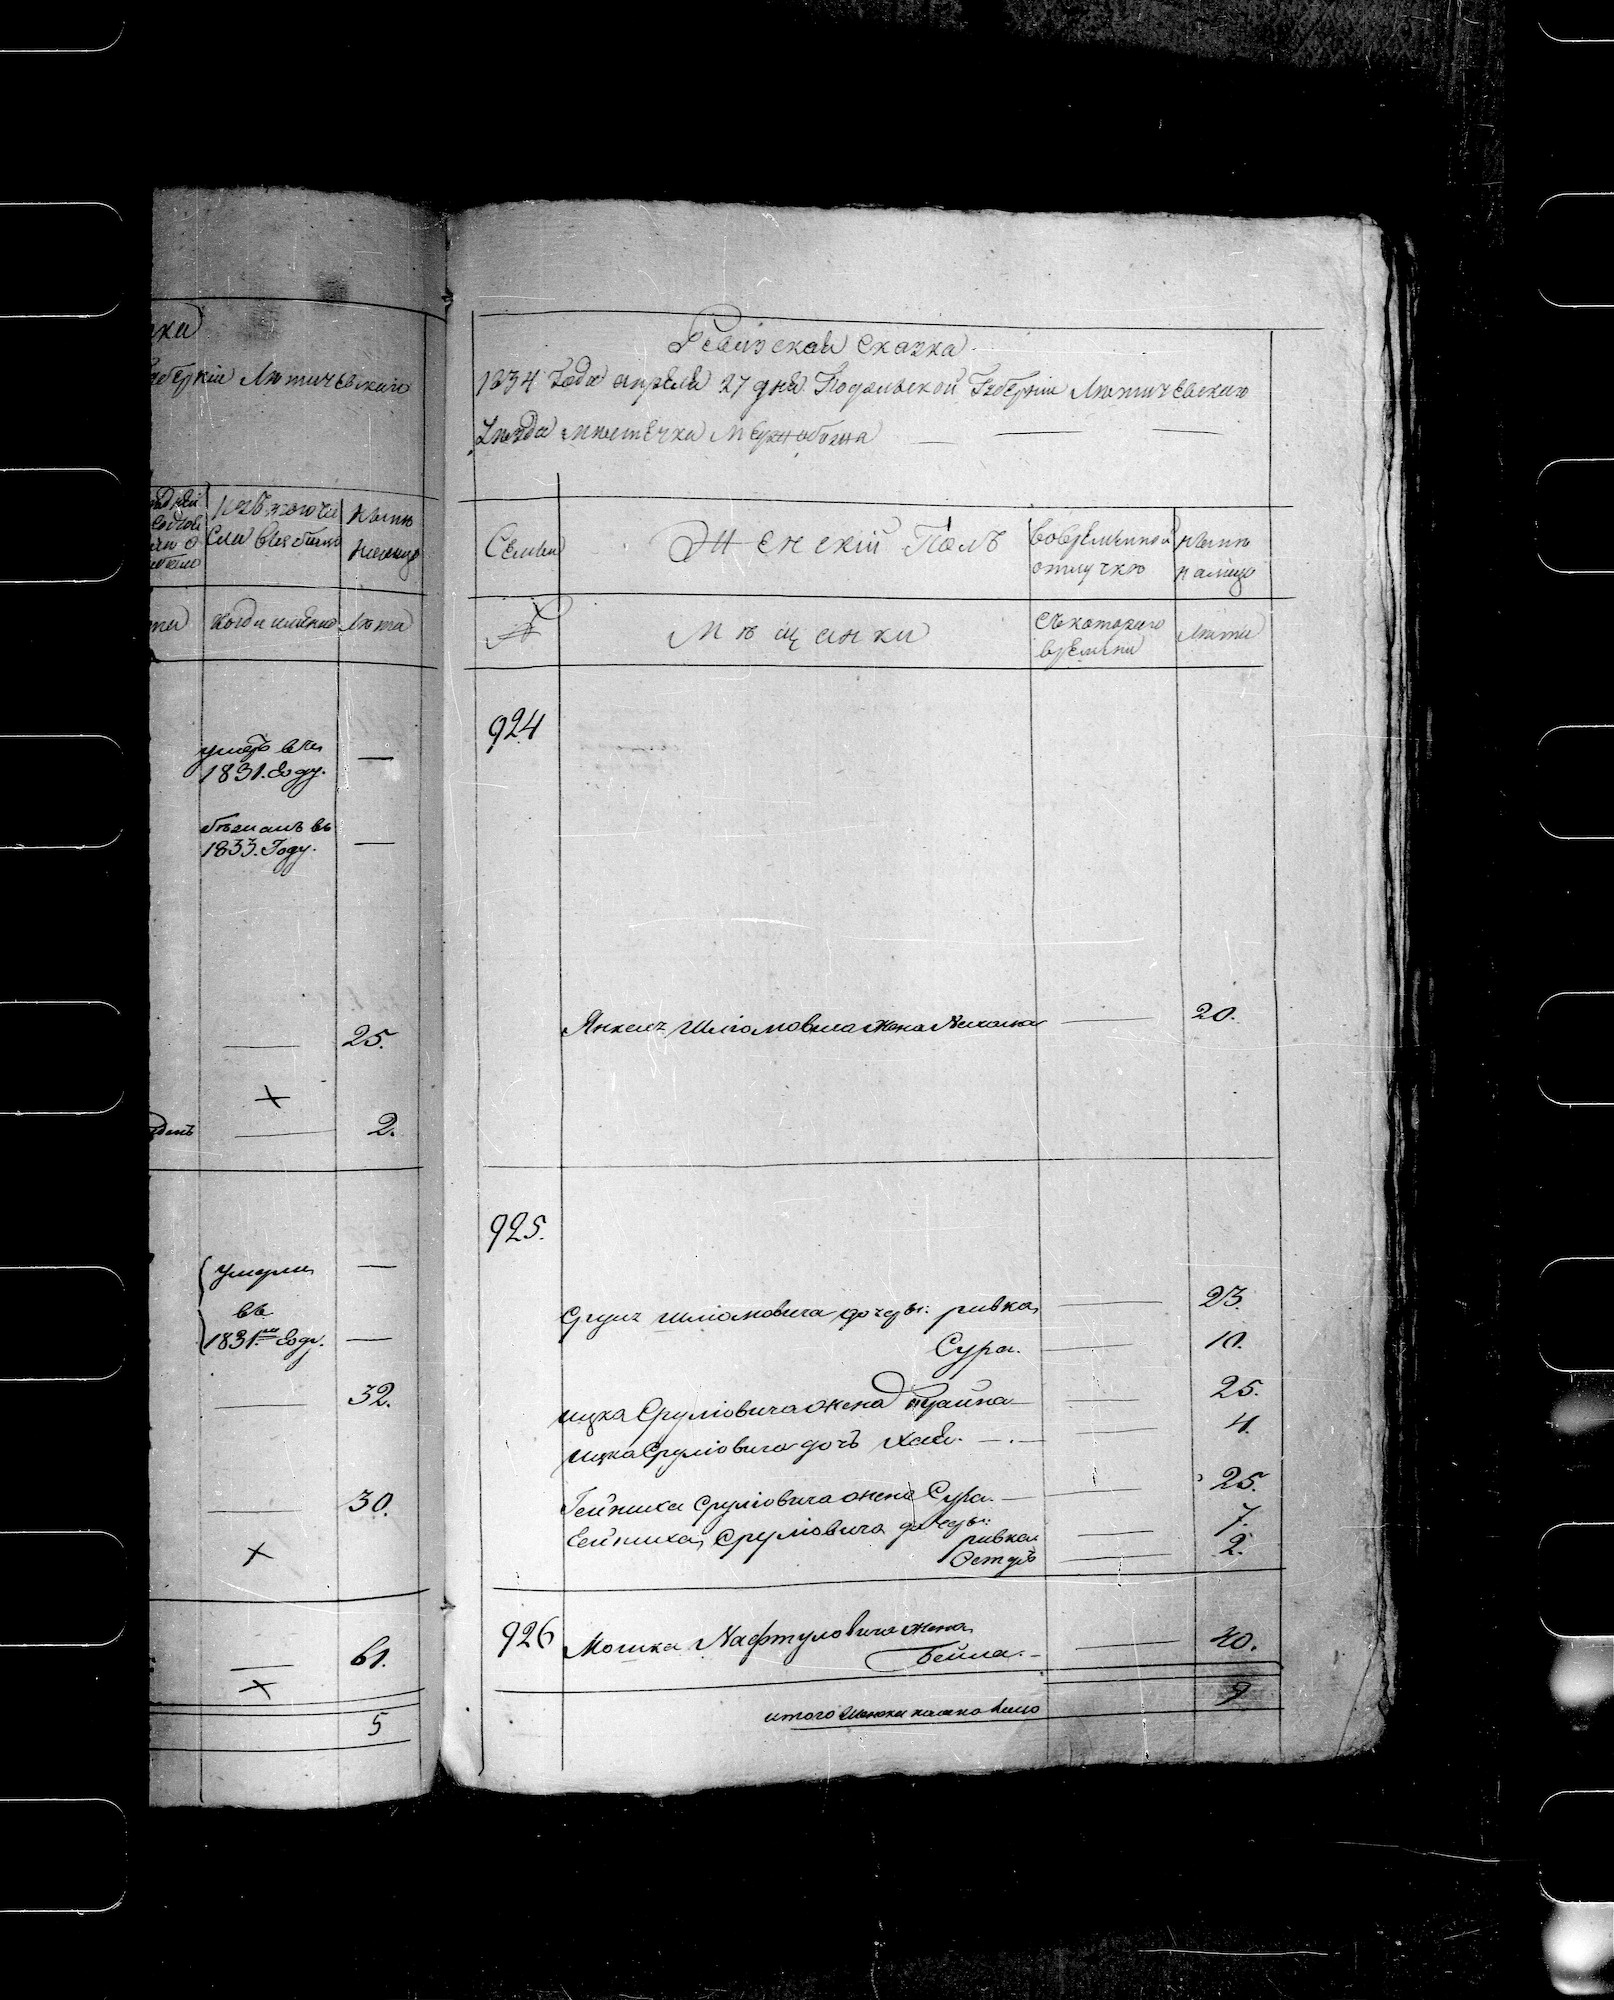 ка
губерніи Лютичевскаго
изъ того числа выбыло
нынѣ налицо
та
когда именно
Лѣта
умеръ въ
1831. Году.
—
бѣжалъ въ
1833. Году.
—
25.
2.
умерли
въ
1831.мъ Году.
32.
30.
61.
5
Ревизская сказка
1834 Года апреля 27 дня Подольской Губерніи Лютичевскаго
уезда местечка Межибожа
Семьи
Женскій Полъ
Вовременной отлучке
ныне налицо
№
Мѣщанки
съ котораго времени
Лѣта
924
Янкеля Шліомовича жена 20.
925.
Сруля Шліомовича дочеры: ривка 23.
Сура. 10.
ицка Сруліовича жена 25.
ицка Сруліовича дочъ Хая. 4.
Гейниха Сруліовича жена Сура. 25.
Гейниха Сруліовича дочеры:
ривка 7.
Естеръ 2.
926 Мошка Нафтуловича жена
Бейла. 40.
итого женска налицо 9